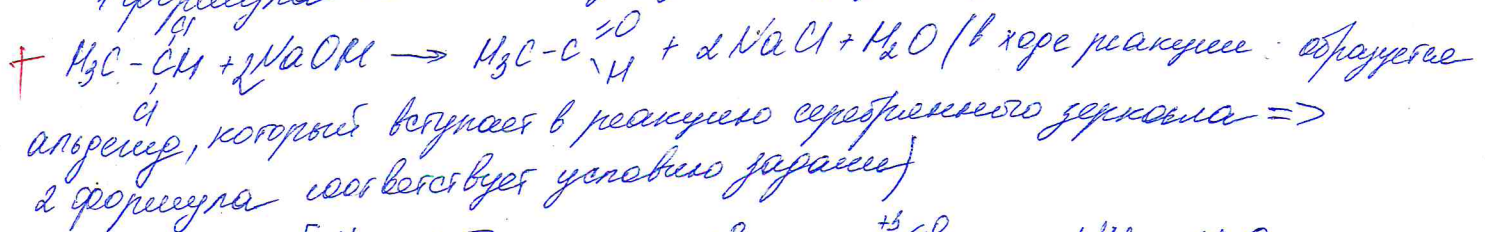 1 формула
Cl
+ H₃C - CH + 2NaOH → H₃C - C =O \H + 2NaCl + H₂O (в ходе реакции образуется
Cl
альдегид, который вступает в реакцию серебрянного зеркала =>
2 формула соответствует условию задачи)
+3